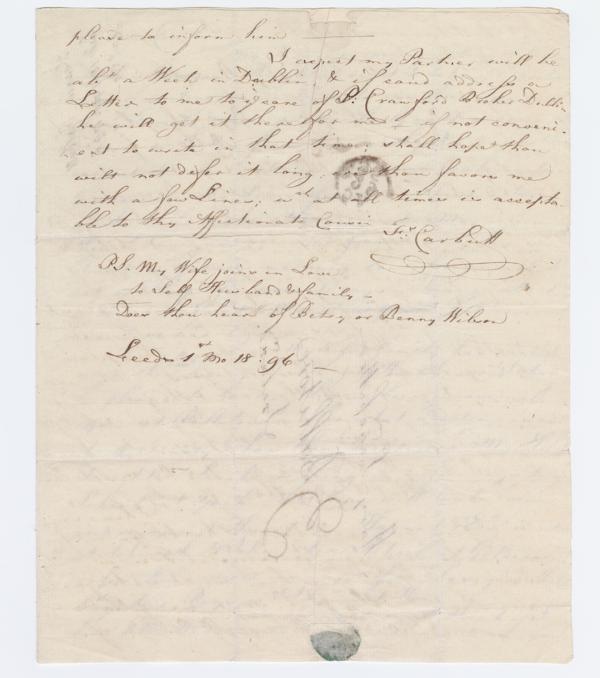 please to inform him
I expect my Partner will be
abt. a Week in Dublin & if
Letter to me to ye care of Crawford Broker Dublin
he will get it there for me if not conveni-
ent to write in that time, shall hope thou
wilt not defer it long, thou favour me
with a few Lines, wch. at all times is accepta-
ble to thy Affectionate Cousin
Fs. Carbutt
P.S. My Wife joins in Love
to Self Husband & family -
Does thou hear of Betsy or Benny Wilson
Leeds 1st Mo 18. 96 -